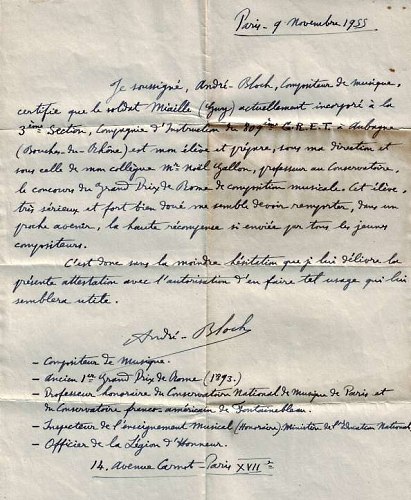 Paris - 9 Novembre 1955
Je soussigné, André-Bloch, Compositeur de musique,
certifie que le soldat Miaille (Guy) actuellement incorporé à la
3ème Section, Compagnie d'Instruction du 809ème C.R.E.T. à Aubagne
(Bouches-du-Rhône) est mon élève et prépare, sous ma direction et
sous celle de mon collègue Mr Noël Gallon, professeur au Conservatoire,
le concours du Grand Prix de Rome de composition musicale. Cet élève,
très sérieux et fort bien doué me semble devoir remporter, dans un
proche avenir, la haute récompense si enviée par tous les jeunes
compositeurs.
C'est donc sans la moindre hésitation que je lui délivre la
présente attestation avec l'autorisation d'en faire tel usage qui lui
semblera utile.
André-Bloch
- Compositeur de Musique.
- Ancien 1er Grand Prix de Rome (1893.)
- Professeur honoraire du Conservatoire National de musique de Paris et
du Conservatoire franco-américain de Fontainebleau.
- Inspecteur de l'enseignement Musical (Honoraire) Ministère de l'Education National
- Officier de la Légion d'Honneur.
14, Avenue Carnot - Paris XVIIe